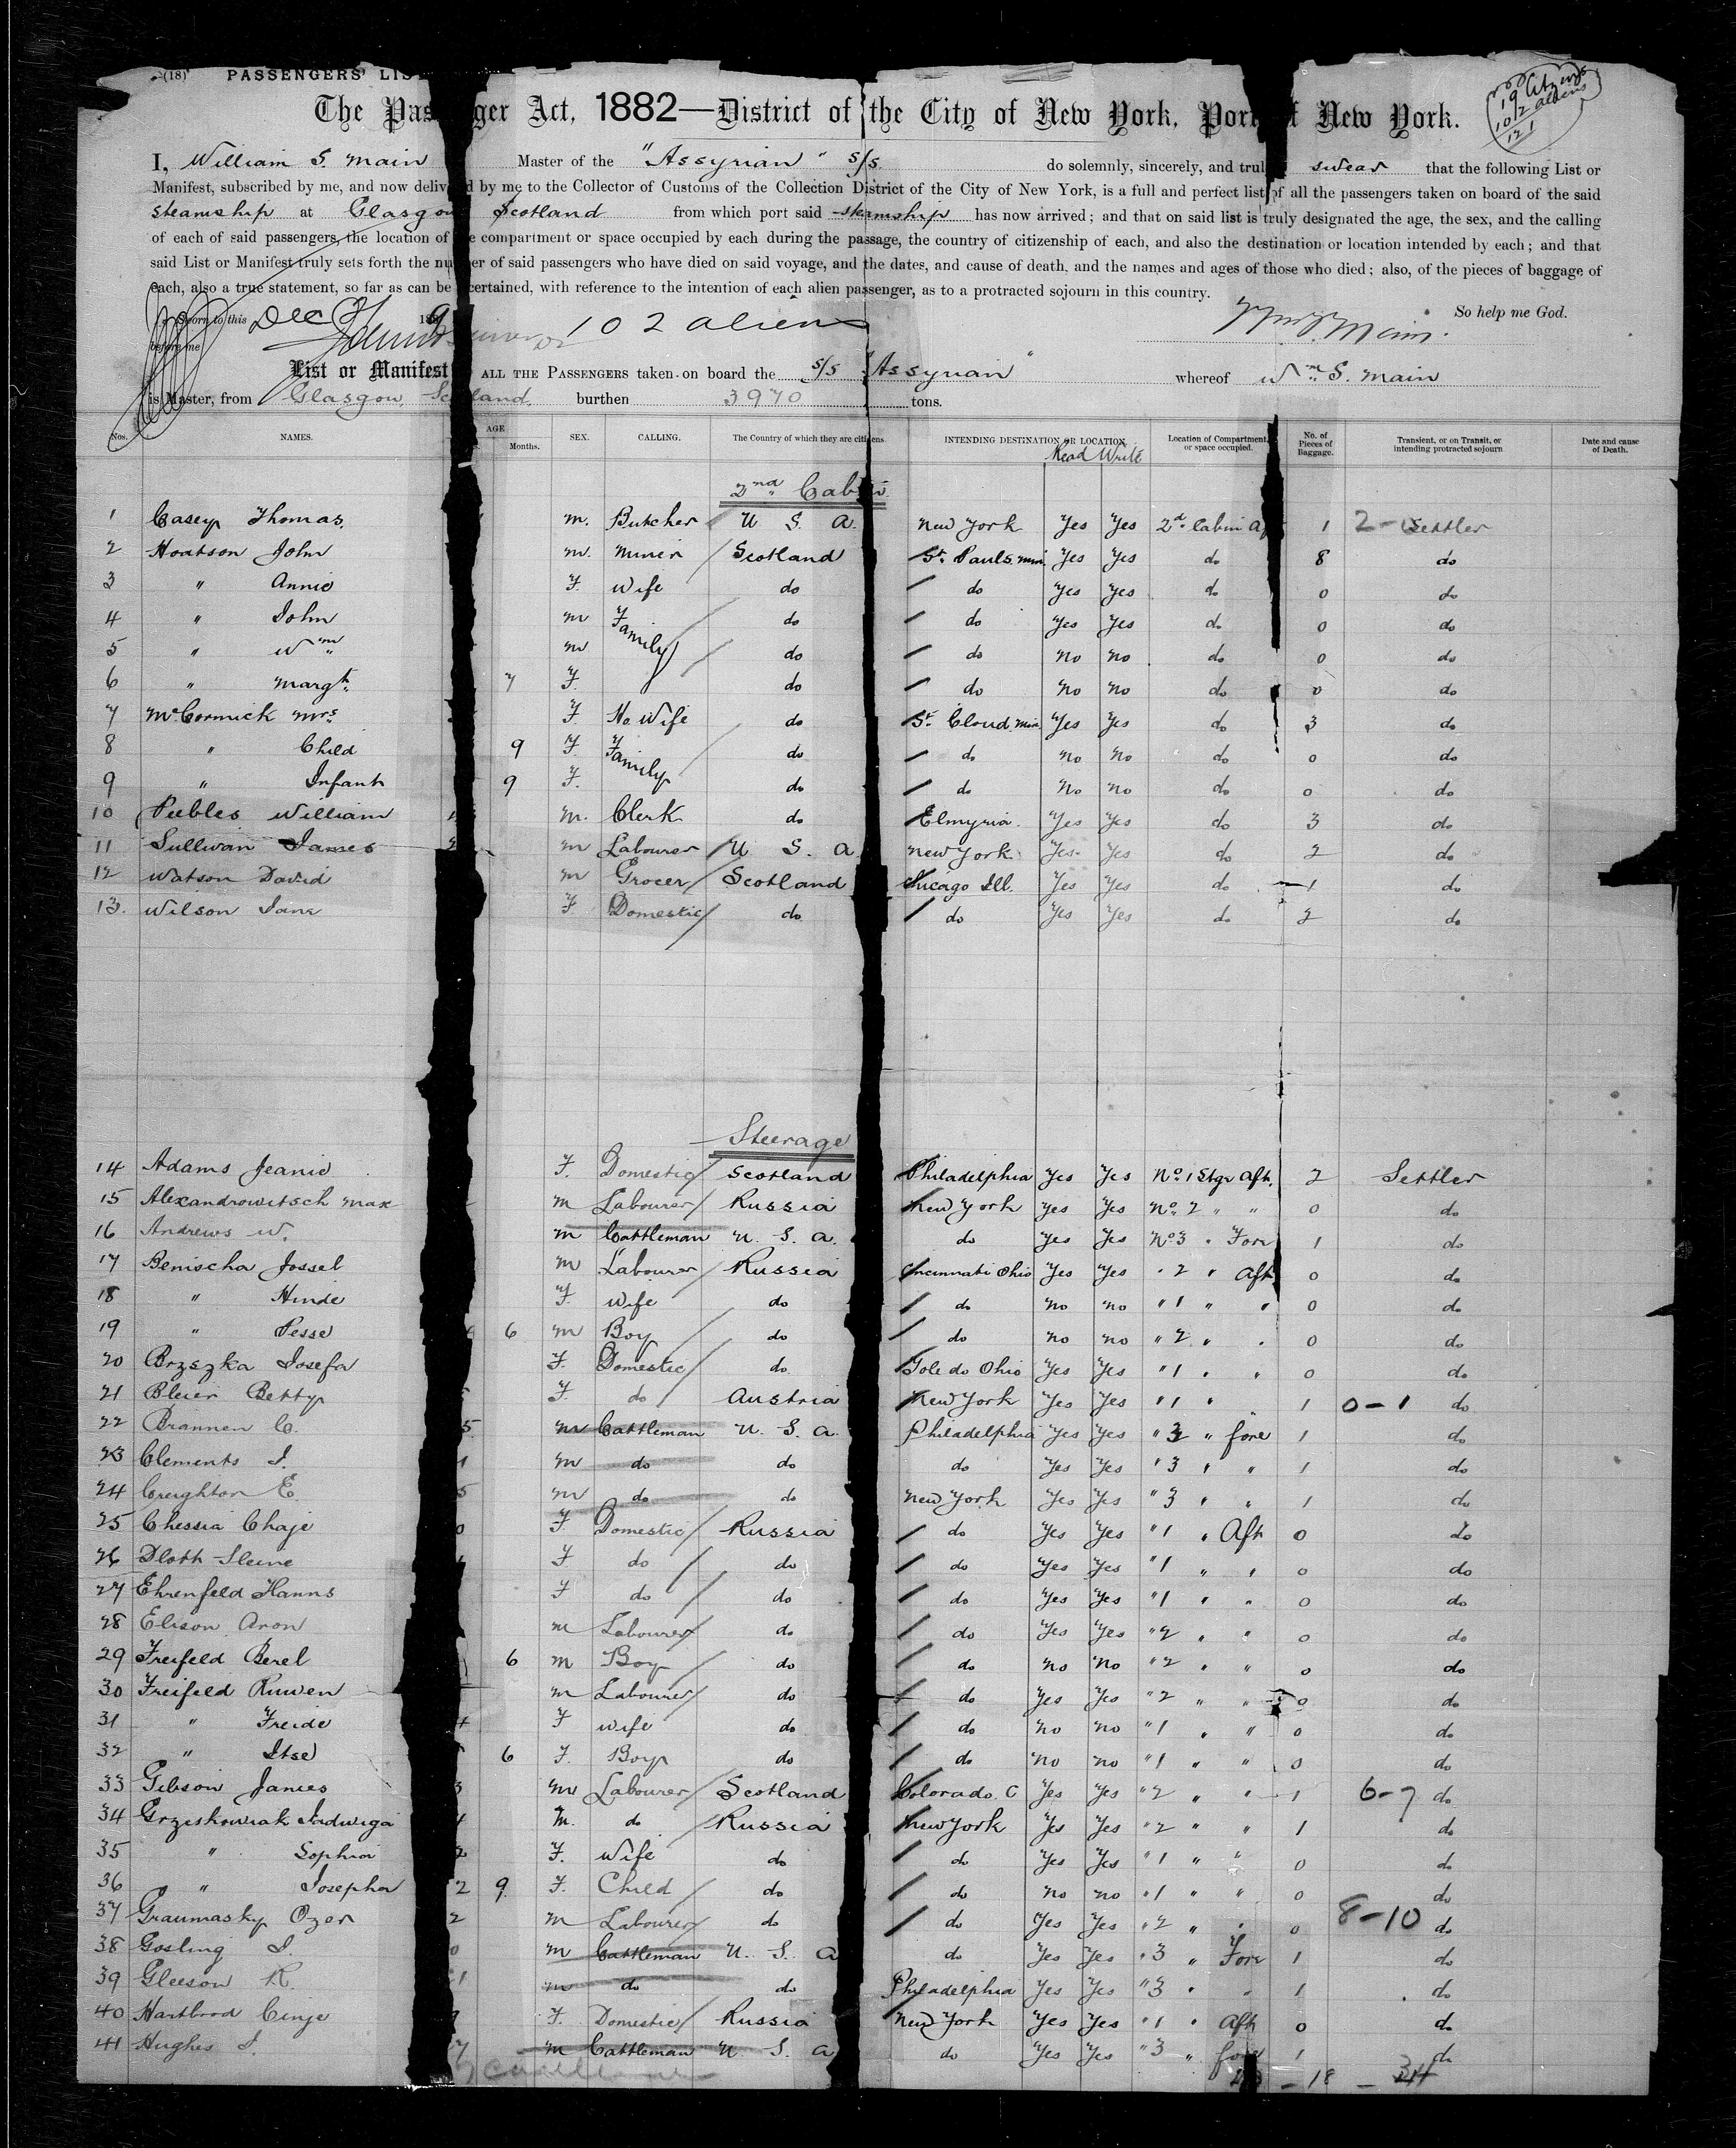 (18) PASSENGERS' LIS
19 Citzens
102 aliens
121
The Pas ger Act, 1882—District of the City of New York, Port of New York.
I, William S. Main Master of the "Assyrian" S/S do solemnly, sincerely, and trul swear that the following List or
Manifest, subscribed by me, and now deliv d by me to the Collector of Customs of the Collection District of the City of New York, is a full and perfect list of all the passengers taken on board of the said
Steamship at Glasgow Scotland from which port said steamship has now arrived; and that on said list is truly designated the age, the sex, and the calling
of each of said passengers, the location of e compartment or space occupied by each during the passage, the country of citizenship of each, and also the destination or location intended by each; and that
said List or Manifest truly sets forth the nu er of said passengers who have died on said voyage, and the dates, and cause of death, and the names and ages of those who died; also, of the pieces of baggage of
each, also a true statement, so far as can be certained, with reference to the intention of each alien passenger, as to a protracted sojourn in this country.
So help me God.
Sworn to this Dec 189 102 aliens Wm S. Main
before me
List or Manifest ALL THE PASSENGERS taken on board the S/S "Assyrian" whereof Wm S. Main
is Master, from Glasgow, Scotland, burthen 3970 tons.
Nos. NAMES. AGE Months. SEX. CALLING. The Country of which they are citizens. INTENDING DESTINATION OR LOCATION Read Write Location of Compartment, or space occupied. No. of Pieces of Baggage. Transient, or on Transit, or intending protracted sojourn Date and cause of Death.
2nd Cabin
1 Casey Thomas. M. Butcher U S. A. New York Yes Yes 2d Cabin Af 1 2- Settler
2 Hoatson John M. Miner Scotland St. Pauls Min. Yes Yes do 8 do
3 " Annie F. Wife do do Yes Yes do 0 do
4 " John M Family do do Yes Yes do 0 do
5 " Wm M do do No No do 0 do
6 " Margt. 7 F. do do No No do 0 do
7 McCormick Mrs F. Ho Wife do St. Cloud Min Yes Yes do 3 do
8 " Child 9 F. Family do do No No do 0 do
9 " Infant 9 F. do do No No do 0 do
10 Peebles William M. Clerk do Elmyria. Yes Yes do 3 do
11 Sullivan James M Labourer U S. A New York Yes Yes do 2 do
12 Watson David M Grocer Scotland Chicago Ill. Yes Yes do 1 do
13. Wilson Jane F Domestic do do Yes Yes do 2 do
Steerage
14 Adams Jeanie F. Domestic Scotland Philadelphia Yes Yes No. 1 Stge Aft. 2 Settler
15 Alexandrowitsch Max M Labourer Russia New York Yes Yes No. 2 " " 0 do
16 Andrews W. M Cattleman U. S. A. do Yes Yes No 3 " Fore 1 do
17 Benischa Jossel M Labourer Russia Cincinnati Ohio Yes Yes " 2 " Aft 0 do
18 " Hinde F. Wife do do No No " 1 " " 0 do
19 " Pesse 6 M Boy do do No No " 2 " " 0 do
20 Brzszka Josefa F. Domestic do Toledo Ohio Yes Yes " 1 " " 0 do
21 Bleier Betty F. do Austria New York Yes Yes " 1 " 1 0-1 do
22 Brannen C. 5 M Cattleman U. S. A. Philadelphia Yes Yes " 3 " fore 1 do
23 Clements J. M do do do Yes Yes " 3 " " 1 do
24 Creighton E. 5 M do do New York Yes Yes " 3 " " 1 do
25 Chessia Chaje 0 F Domestic Russia do Yes Yes " 1 " Aft 0 do
26 Dloth Sleine F do do do Yes Yes " 1 " " 0 do
27 Ehrenfeld Hanns F do do do Yes Yes " 1 " " 0 do
28 Elison Aron M Labourer do do Yes Yes " 2 " " 0 do
29 Freifeld Berel 6 M Boy do do No No " 2 " " 0 do
30 Freifeld Ruwen M Labourer do do Yes Yes " 2 " " 0 do
31 " Freide 4 F Wife do do No No " 1 " " 0 do
32 " Itse 6 F. Boy do do No No " 1 " " 0 do
33 Gibson James 3 M Labourer Scotland Colorado. C Yes Yes " 2 " " 1 6-7 do
34 Grzeskowiak Jadwiga 4 M. do Russia New York Yes Yes " 2 " " 1 do
35 " Sophia 2 F. Wife do do Yes Yes " 1 " " 0 do
36 " Josepha 2 9. F. Child do do No No " 1 " " 0 do
37 Graumasky Ozer 2 M Labourer do do Yes Yes " 2 " " 0 8-10 do
38 Gosling J. 0 M Cattleman U. S. A do Yes Yes " 3 " Fore 1 do
39 Gleeson R. 1 M do do Philadelphia Yes Yes " 3 " " 1 do
40 Hartbrod Cinje F. Domestic Russia New York Yes Yes " 1 " Aft 0 do
41 Hughes J. 7 M Cattleman U. S. A do Yes Yes " 3 " fore 1 do
- 18 -